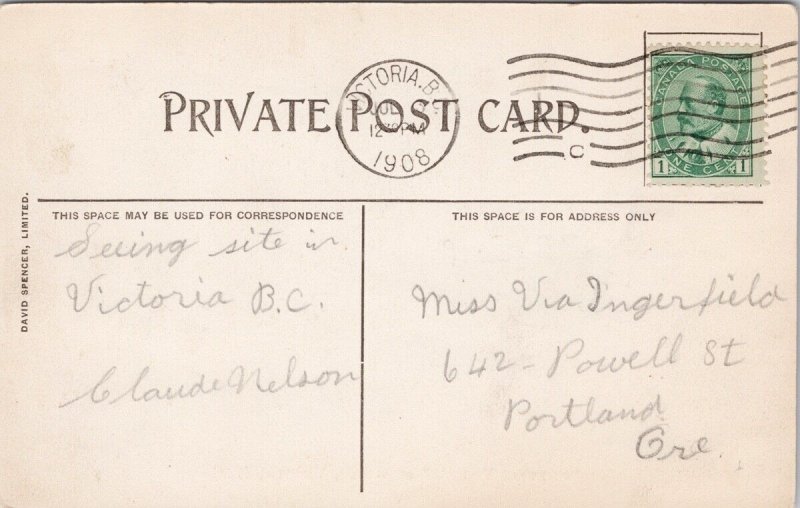 PRIVATE POST CARD.
VICTORIA. B.C.
JUL
12 30 PM
1908
C
CANADA POSTAGE
1 ONE CENT 1
DAVID SPENCER, LIMITED.
THIS SPACE MAY BE USED FOR CORRESPONDENCE
THIS SPACE IS FOR ADDRESS ONLY
Seeing site in
Victoria B.C.
Claude Nelson
Miss Via Ingerfield
642 - Powell St
Portland
Ore.